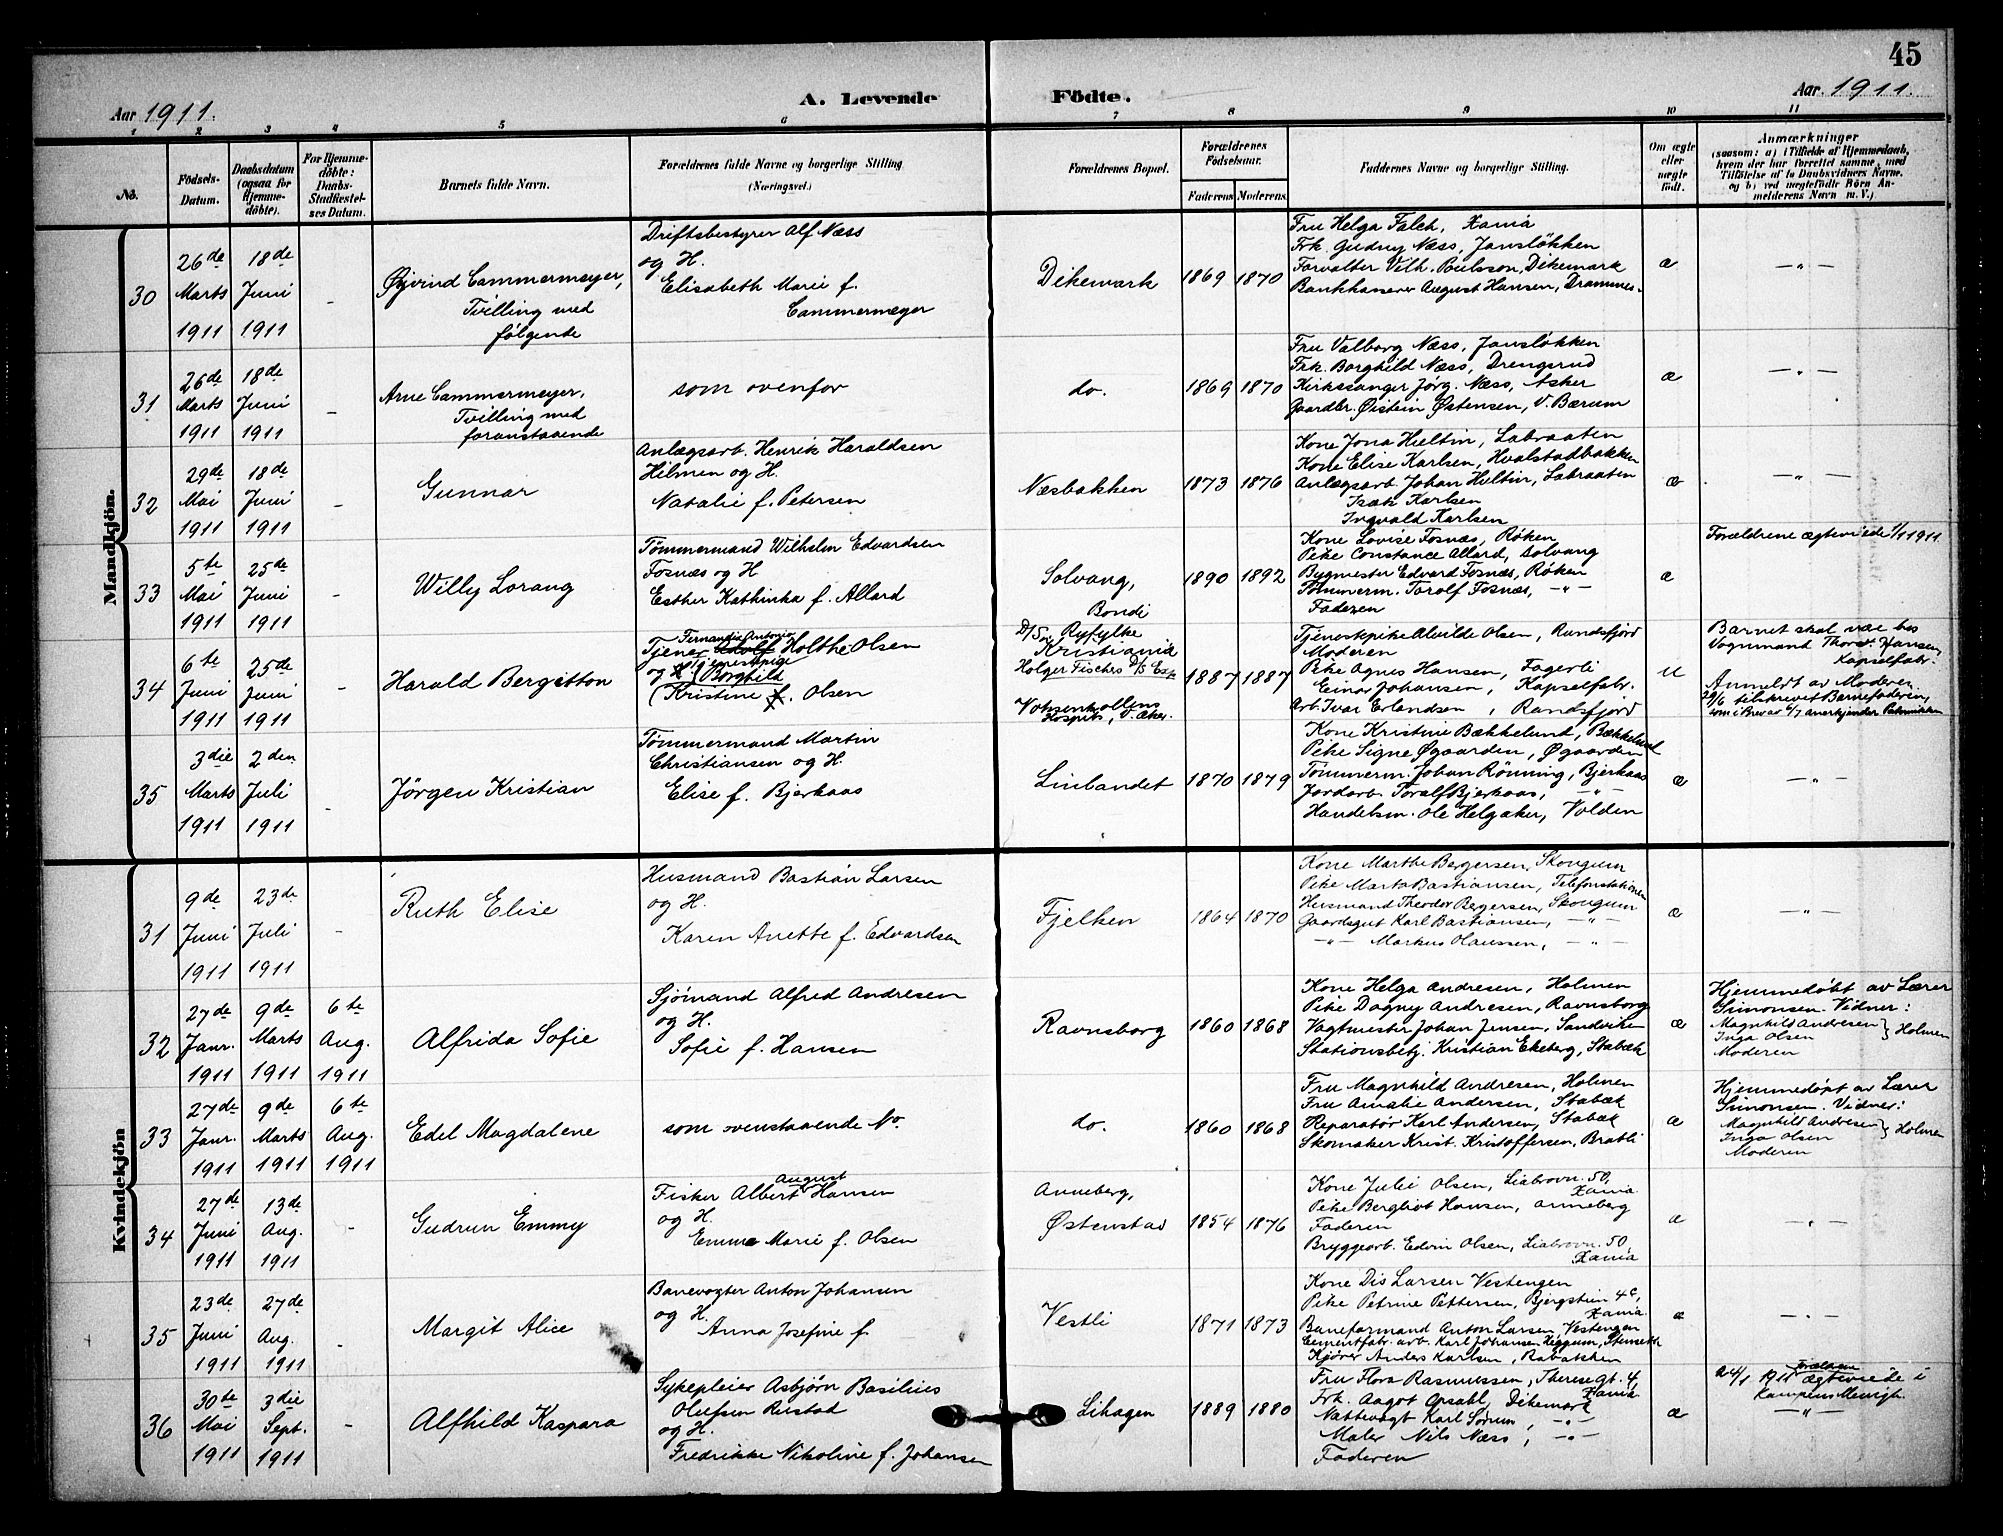 45
Aar 1911.
A. Levende Födte.
Aar 1911.
1 2 3 4 5 6 7 8 9 10 11
No.
Födsels-Datum.
Daabsdatum (ogsaa for Hjemmedöbte).
For Hjemmedöbte: Daabs-Stadfæstelses Datum.
Barnets fulde Navn.
Forældrenes fulde Navne og borgerlige Stilling (Næringsvei.)
Forældrenes Bopæl.
Forældrenes Födselsaar.
Faderens Moderens
Faddernes Navne og borgerlige Stilling.
Om ægte eller uægte födt.
Anmærkninger
(saasom: a) i Tilfælde af Hjemmedaab, hvem der har forrettet samme, med Tilföielse af to Daabsvidners Navne, og b) ved uægtefödte Börn Anmelderens Navn m. V.)
Mandkjön.
30
26de Marts 1911
18de Juni 1911
-
Øjvind Cammermeyer,
Tvilling med
følgende
Driftsbestyrer Alf Næss
og H.
Elisabeth Marie f.
Cammermeyer
Dikemark
1869 1870
Fru Helga Falch, Xania
Frk. Gudny Næss, Jansløkken
Forvalter Vilh. Poulsson, Dikemark
August Hansen, Drammen.
æ
—"—
31
26de Marts 1911
18de Juni 1911
-
Arne Cammermeyer,
Tvilling med
foranstaaende
som ovenfor
do.
1869 1870
Fru Valborg Næss, Jansløkken
Frk. Borghild Næss, Drengsrud
Kirkesanger Jørg. Næss, Asker
Gaardbr. Øistein Østensen, V. Bærum
æ
—"—
32
29de Mai 1911
18de Juni 1911
-
Gunnar
Anlægsarb. Henrik Haraldsen
Hilmen og H.
Natalie f. Petersen
Næsbakken
1873 1876
Kone Jona Hultin, Labraaten
Kone Elise Karlsen, Hvalstadbakken
Anlægsarb. Johan Hultin, Labraaten
Isak Karlsen
Ingvald Karlsen
æ
—"—
33
5te Mai 1911
25de Juni 1911
-
Willy Lorang
Tømmermand Wilhelm Edvardsen
Fosnæs og H
Esther Kathinka f. Allard
Solvang,
Bondi
1890 1892
Kone Lovise Fosnæs, Røken
Pike Constance Allard, Solvang
Bygmester Edvard Fosnæs, Røken
Tømmerm. Torolf Fosnæs, —"—
Faderen
æ
Forældrene ægteviede 1/1 1911.
34
6te Juni 1911
25de Juni 1911
-
Harald Bergitton
Fernandin Antonio
Tjener Adolf Holthe Olsen
og H. Tjenestepige
(Borghild
(Kristine f. Olsen
D/S Ryfylke
Kristiania
Holger Fischers
Voksenkollens
Hospits, V. Aker.
1887 1887
Tjenestepike Alvilde Olsen, Randsfjord
Moderen
Pike Agnes Hansen, Fagerli
Einar Johansen, Kapselfabr.
Arb. Ivar Erlandsen, Randsfjord
U
Barnet skal være hos
Vognmand Thorv. Hansen,
Kapselfabr.
Anmeldt av Moderen.
29/6 tilskrevet Barnefaderen,
som i Brev av 6/7 anerkjender
35
3die Marts 1911
2den Juli 1911
-
Jörgen Kristian
Tømmermand Martin
Christiansen og H.
Elise f. Bjerkaas
Linlandet
1870 1879
Kone Kristine Bækkelund, Bækkelund
Pike Signe Øgaarden, Øgaarden
Tömmerm. Johan Rönning, Bjerkaas
Jordarb. Toralf Bjerkaas, —"—
Handelsm. Ole Helgaker, Volden
æ
—"—
Kvindekjön
31
9de Juni 1911
23de Juli 1911
-
Ruth Elise
Husmand Bastian Larsen
og H.
Karen Anette f. Edvardsen
Fjelken
1864 1870
Kone Marthe Bergersen, Skougum
Pike Marta Bastiansen, Telefonstationen
Husmand Theodor Bergersen, Skougum
Gaardsgut Karl Bastiansen, —"—
—"— Markus Olaussen, —"—
æ
—"—
32
27de Janr. 1911
9de Marts 1911
6te Aug. 1911
Alfrida Sofie
Sjømand Alfred Andresen
og H.
Sofie f. Hansen
Ravnsborg
1860 1868
Kone Helga Andresen, Holmen
Pike Dagny Andresen, Ravnsborg
Vagtmester Johan Jensen, Sandviken
Stationsbetj. Kristian Ekeberg, Stabæk
æ
Hjemmedøbt av Lærer
Simonsen. Vidner:
Magnhild Andresen } Holmen
Inga Olsen
Moderen
33
27de Janr. 1911
9de Marts 1911
6te Aug. 1911
Edel Magdalene
som ovenstaaende No.
do.
1860 1868
Fru Magnhild Andresen, Holmen
Fru Amalie Andersen, Stabæk
Reparatør Karl Andersen, Stabæk
Skomaker Krist. Kristoffersen, Bratli
æ
Hjemmedøpt av Lærer
Simonsen. Vidner:
Magnhild Andresen } Holmen
Inga Olsen
Moderen
34
27de Juni 1911
13de Aug. 1911
-
Gudrun Emmy
August
Fisker Albert Hansen
og H.
Emma Marie f. Olsen
Anneberg,
Østenstad
1854 1876
Kone Julie Olsen, Liabrovn. 50,
Xania.
Pike Bergliot Hansen, Anneberg
Faderen
Bryggearb. Edvin Olsen, Liabrovn. 50
Xania
æ
—"—
35
23de Juni 1911
27de Aug. 1911
-
Margit Alice
Banevogter Anton Johansen
og H.
Anna Josefine f.
Vestli
1871 1873
Kone Dis Larsen Vestengen
Pike Petrine Pettersen, Bjergstien 4c,
Xania.
Baneformand Anton Larsen, Vestengen
Cementfabr. arb. Karl Johansen,
Kjører Anders Karlsen, Rabakken
æ
—"—
36
30te Mai 1911
3die Sept. 1911
-
Alfhild Kaspara
Sykepleier Asbjörn Basilius
Olufsen Rustad
og H.
Fredrikke Nikoline f. Johansen
Lihagen
1889 1880
Fru Flora Rasmussen, Theresegt. 4,
Xania
Frk. Aagot Opsahl, Dikemark
Nattevagt Karl Sørum, —"—
Maler Nils Næss, —"—
Faderen
æ
Forældrene
1911 ægteviede i
Kampens Menigh.
—"—